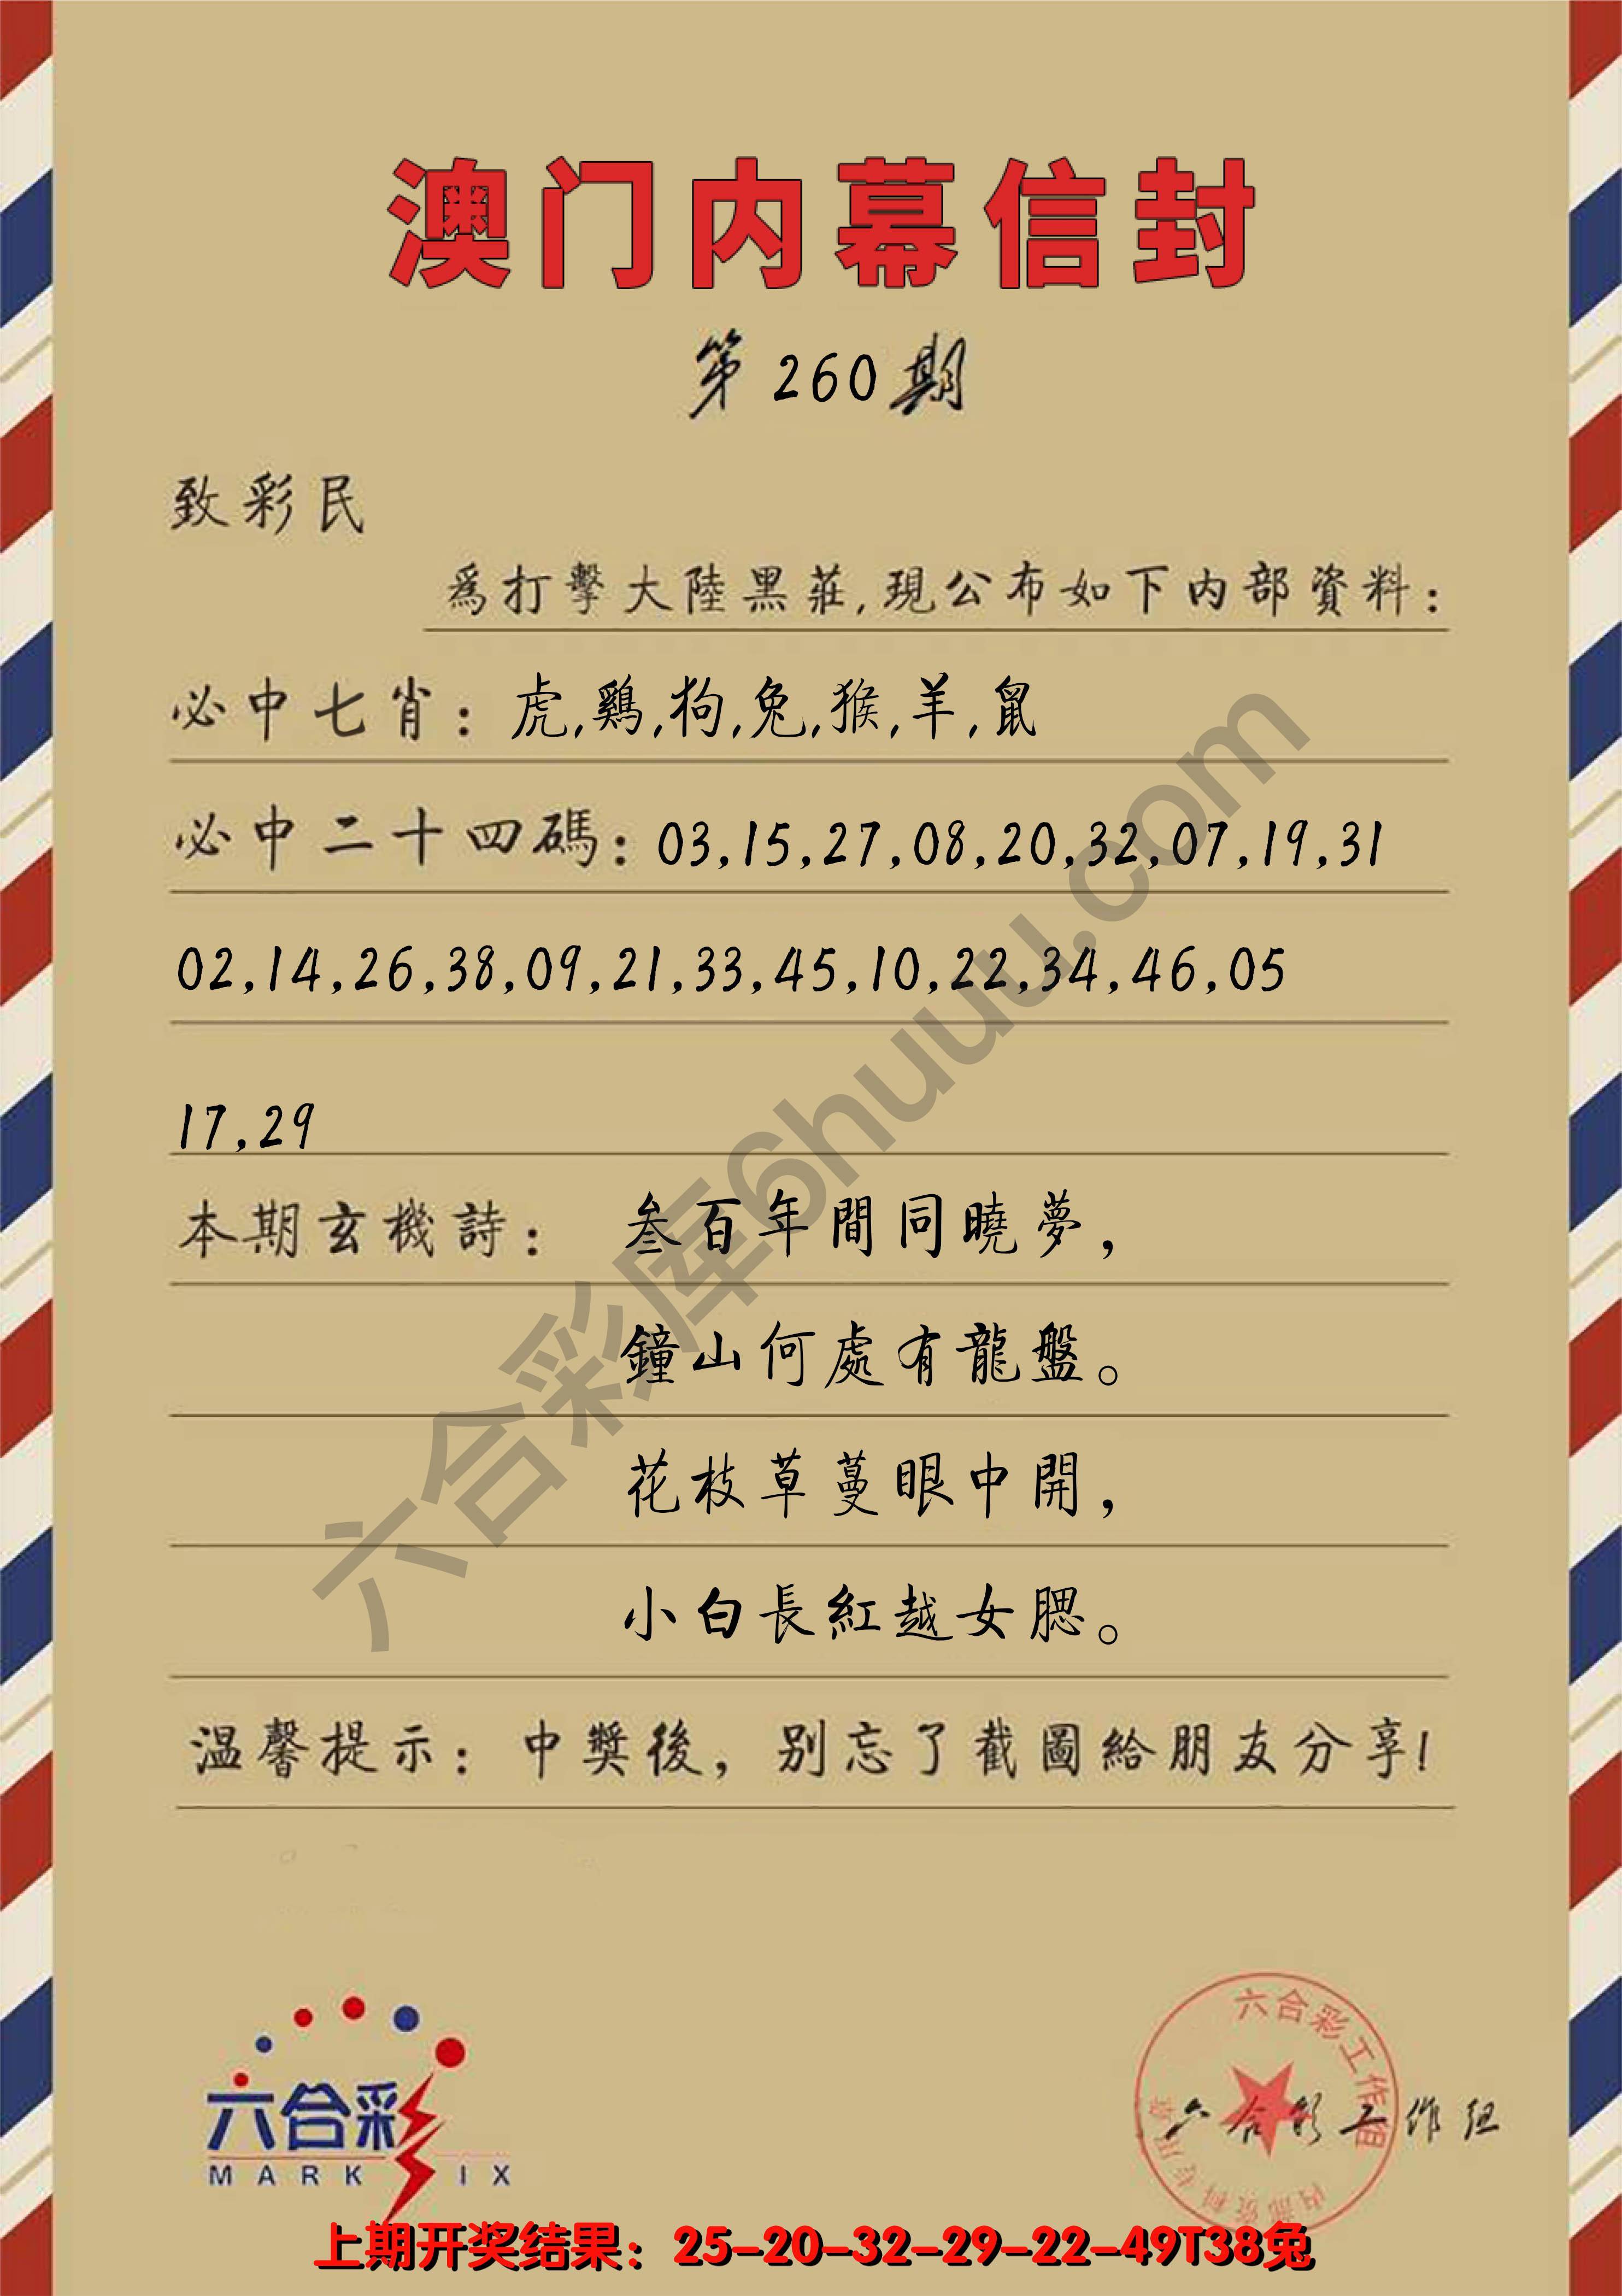 澳门内幕信封
第260期
致彩民
爲打擊大陸黑莊,現公布如下内部資料:
必中七肖:虎,鷄,狗,兔,猴,羊,鼠
必中二十四碼:03,15,27,08,20,32,07,19,31
02,14,26,38,09,21,33,45,10,22,34,46,05
17,29
本期玄機詩: 叁百年間同曉夢,
鐘山何處有龍盤。
花枝草蔓眼中開,
小白長紅越女腮。
温馨提示:中獎後,别忘了截圖給朋友分享!
六合彩库6huuu.com
六合彩
MARK IX
六合彩工作组
内部资料专用章
六合彩工作组
上期开奖结果:25-20-32-29-22-49T38兔